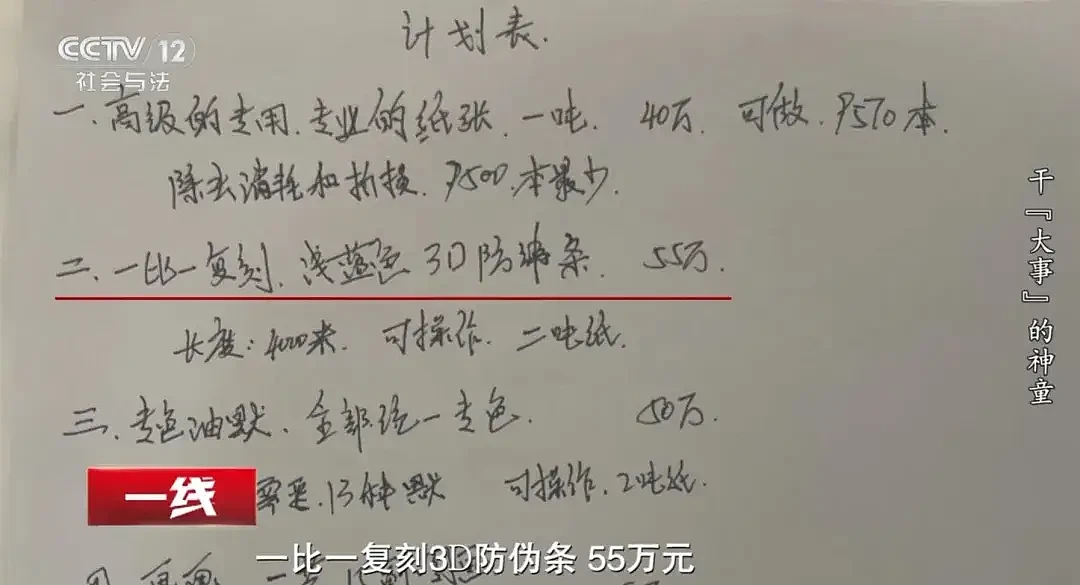 CCTV 12
社会与法
计划表.
一、高级的专用、专业的纸张、一吨. 40万. 可做、9570本.
除去消耗和折损、9500、本最少.
二、一比一复刻、浅蓝色 3D防伪条. 55万.
长度:4000米. 可操作. 二吨纸.
三、专色油默、全部统一专色. 50万.
一线
13种默 可操作、2吨纸.
一比一复刻3D防伪条 55万元
干『大事』的神童